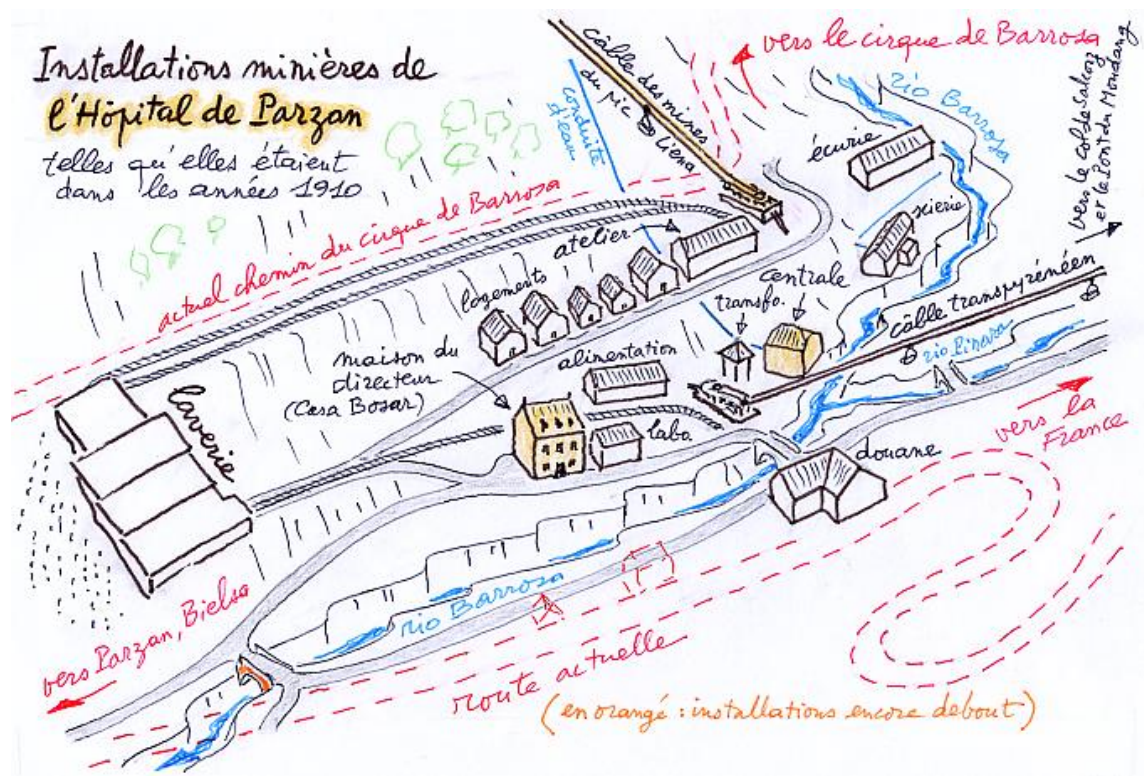 Installations minières de
l'Hôpital de Parzan
telles qu'elles étaient
dans les années 1910
câble des mines
du pic Liena
conduite
d'eau
vers le cirque de Barrosa
rio Barrosa
écurie
vers le Col de Salcorz
et le Pont du Moudang
scierie
actuel chemin du cirque de Barrosa
atelier
logements
centrale
transfo.
câble transpyrénéen
rio Pinara
maison du
directeur
(Casa Bosar)
alimentation
laverie
labo.
vers la
France
douane
vers Parzan, Bielsa
rio Barrosa
route actuelle
(en orangé : installations encore debout)